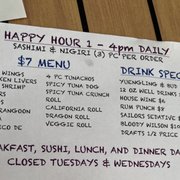 HAPPY HOUR 1 - 4pm DAILY
SASHIMI & NIGIRI (2) PC PER ORDER
$7 MENU
WINGS
LIVERS
SHRIMP
4 PC TUNACHOS
SPICY TUNA DOG
SPICY TUNA CRUNCH
ROLL
CALIFORNIA ROLL
DRAGON ROLL
VEGGIE ROLL
DRINK SPEC
YUENGLING & BUD
12 OZ WELL DRINKS
HOUSE WINE $6
RUM PUNCH $7
SAILORS SEDATIVE $
BLOODY WINSTON $
DRAFTS 1/2 PRICE
KFAST, SUSHI, LUNCH, AND DINNER DA
CLOSED TUESDAYS & WEDNESDAYS